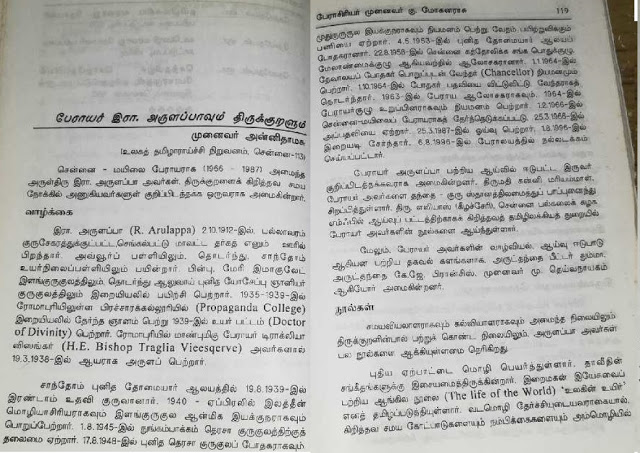 பேராயர் இரா. அருளப்பாவும் திருக்குறளும்
முனைவர் அன்னிதாமசு
(உலகத் தமிழாராய்ச்சி நிறுவனம், சென்னை-113)
சென்னை – மயிலை பேராயராக (1966 - 1987) அமைந்த
அருள்திரு இரா. அருளப்பா அவர்கள், திருக்குறளைக் கிறித்தவ சமய
நோக்கில் அணுகியவர்களுள் குறிப்பிடத்தக்க ஒருவராக அமைகின்றார்.
வாழ்க்கை
இரா. அருளப்பா (R. Arulappa) 2.10.1912-இல், பல்லாவரம்
குருசேகரத்துக்குட்பட்ட செங்கல்பட்டு மாவட்ட தர்கத் எனும் ஊரில்
பிறந்தார். அவ்லூர்ப் பள்ளியிலும், தொடர்ந்து, சாந்தோம்
உயர்நிலைப்பள்ளியிலும் பயின்றார். பின்பு, மேரி இமாகுலேட்
இளங்குருகுலத்திலும், தொடர்ந்து ஆலுவாய் புனித யோசேப்பு ஞானியர்
குருகுலத்திலும் இறையியலில் பயிற்சி பெற்றார். 1935-1939-இல்
ரோமாபுரியிலுள்ள பிரச்சாரக்கல்லூரியில் (Propaganda College)
இறையியலில் தேர்ந்த ஞானம் பெற்று 1939-இல் உயர் பட்டம் (Doctor
of Divinity) பெற்றார். ரோமாபுரியில் மாண்புமிகு பேராயர் டிராக்லியா
விஸங்கர் (H.E. Bishop Traglia Vicesqerve) அவர்களால்
19.3.1938-இல் ஆயராக அருளப் பெற்றார்.
சாந்தோம் புனித தோமையார் ஆலயத்தில் 19.8.1939-இல்
இரண்டாம் உதவி குருவானார். 1940 - ஏப்பிரலில் இலத்தீன்
மொழியாசிரியராகவும் இளங்குருகுல ஆன்மிக இயக்குநராகவும்
பொறுப்பேற்றார். 1.8.1945-இல் நுங்கம்பாக்கம் தெரசா குருகுலத்திற்குத்
தலைமை ஏற்றார். 17.8.1948-இல் புனித தெரசா குருகுலப் போதகராகவும்,
பேராசிரியர் முனைவர் கு. மோகனராசு 119
முதுகுருகுல இயக்குநராகவும் நியமனம் பெற்று வேதம் பயிற்றுவிக்கும்
பணியை ஏற்றார். 4.5.1953-இல் புனித தோமையார் ஆலயப்
போதகரானார். 22.8.1958-இல் சென்னை கத்தோலிக்க சங்க பொதுக்குழு,
மேலாண்மைக்குழு ஆகியவற்றின் ஆலோசகரானார். 1.1.1964-இல்
தேவாலயப் போதகர் பொறுப்புடன் வேந்தர் (Chancellor) நியமனமும்
பெற்றார். 1.10.1964-இல் போதகர் பதவியை விட்டுவிட்டு, வேந்தராகத்
தொடர்ந்தார். 1963-இல் பேராய ஆலோசகராகவும், 1964-இல்
பேராயர்குழு உறுப்பினராகவும் நியமனம் பெற்றார். 1.2.1966-இல்
சென்னை-மயிலைப் பேராயராகத் தேர்ந்தெடுக்கப்பட்டார். 25.3.1966-இல்
அப்பதவியை ஏற்றார். 25.3.1987-இல் ஓய்வு பெற்றார். 1.8.1996-இல்
இறையடி சேர்ந்தார். 6.8.1996-இல் பேராலயத்தில் நல்லடக்கம்
செய்யப்பட்டார்.
பேராயர் அருளப்பா பற்றிய ஆய்வில் ஈடுபட்ட இருவர்
குறிப்பிடத்தக்கவராக அமைகின்றனர். திருமதி கன்னி. மரியம்மாள்,
பேராயர் அவர்களை தந்தை - குரு ஸ்தானத்திலமைத்துப் பாப்புனைந்து
சிறப்பித்துள்ளார். திரு. எலியாஸ் (கீழச்சேரி), சென்னை பல்கலைக் கழக
எம்ஃபில் ஆய்வுப் பட்டத்திற்காகக் கிறித்தவத் தமிழிலக்கியத் துறையில்
பேராயர் அவர்களின் நூல்களை ஆய்ந்துள்ளார்.
மேலும், பேராயர் அவர்களின் வாழ்வியல், ஆய்வு ஈடுபாடு
ஆகியன பற்றிய தகவல் களங்களாக, அருட்தந்தை பீட்டர் தும்மா,
அருட்தந்தை கே.ஜே. பிரான்சிஸ், முனைவர் மு. தெய்வநாயகம்
ஆகியோர் அமைகின்றனர்.
நூல்கள்
சமயவியலாளராகவும் கல்வியாளராகவும் அமைந்த நிலையிலும்
திருக்குறளின்பால் பற்றுக் கொண்ட நிலையிலும், அருளப்பா அவர்கள்
பல நூல்களை ஆக்கியுள்ளமை தெரிகிறது.
புதிய ஏற்பாட்டை மொழி பெயர்த்துள்ளார். தாவீதின்
சங்கீதங்களுக்கு இசையமைத்திருக்கின்றார். இறைமகன் இயேசுவைப்
பற்றிய ஆங்கில நூலை (The life of the World) 'உலகின் உயிர்'
எனத் தமிழ்ப்படுத்தியுள்ளார். வடமொழி தேர்ச்சியுடையவராகையால்,
கிறித்தவ சமய கோட்பாடுகளையும் நம்பிக்கைகளையும் அம்மொழியில்